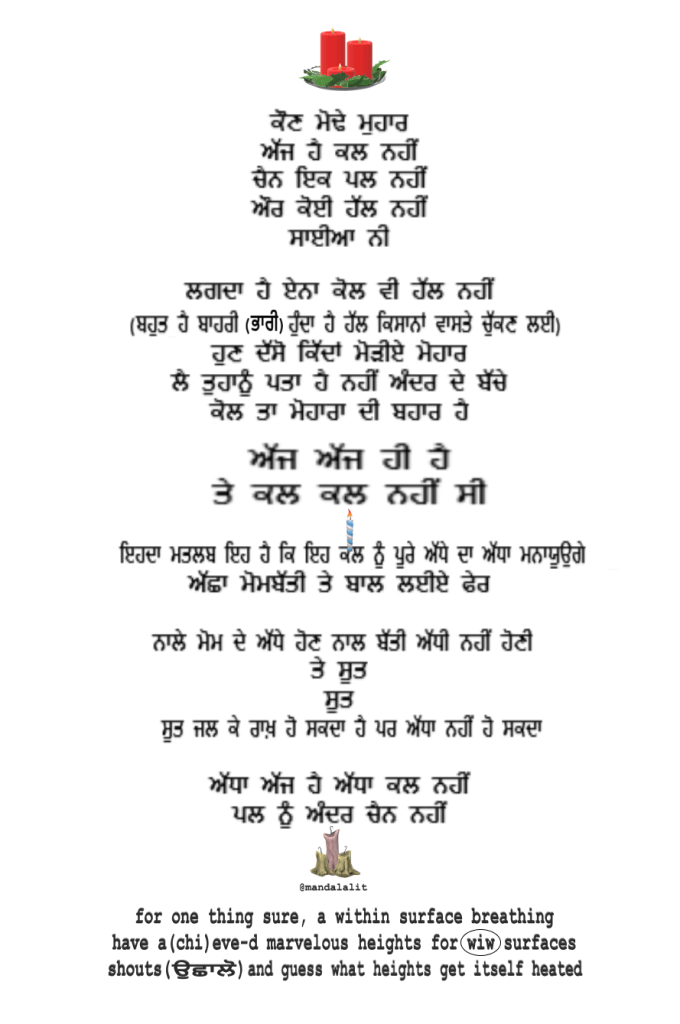 ਕੌਣ ਮੋਢੇ ਮੁਹਾਰ
ਅੱਜ ਹੈ ਕਲ ਨਹੀਂ
ਚੈਨ ਇਕ ਪਲ ਨਹੀਂ
ਔਰ ਕੋਈ ਹੱਲ ਨਹੀਂ
ਸਾਈਆ ਨੀ
ਲਗਦਾ ਹੈ ਏਨਾ ਕੋਲ ਵੀ ਹੱਲ ਨਹੀਂ
(ਬਹੁਤ ਹੈ ਬਾਹਰੀ (ਭਾਰੀ) ਹੁੰਦਾ ਹੈ ਹੱਲ ਕਿਸਾਨਾਂ ਵਾਸਤੇ ਚੁੱਕਣ ਲਈ)
ਹੁਣ ਦੱਸੋ ਕਿੱਦਾਂ ਮੋੜੀਏ ਮੋਹਾਰ
ਲੈ ਤੁਹਾਨੂੰ ਪਤਾ ਹੈ ਨਹੀਂ ਅੰਦਰ ਦੇ ਬੱਚੇ
ਕੋਲ ਤਾ ਮੋਹਾਰਾ ਦੀ ਬਹਾਰ ਹੈ
ਅੱਜ ਅੱਜ ਹੀ ਹੈ
ਤੇ ਕਲ ਕਲ ਨਹੀਂ ਸੀ
ਇਹਦਾ ਮਤਲਬ ਇਹ ਹੈ ਕਿ ਇਹ ਕਲ ਨੂੰ ਪੂਰੇ ਅੱਧੇ ਦਾ ਅੱਧਾ ਮਨਾਯੂਉਗੇ
ਅੱਛਾ ਮੋਮਬੱਤੀ ਤੇ ਬਾਲ ਲਈਏ ਫੇਰ
ਨਾਲੇ ਮੋਮ ਦੇ ਅੱਧੇ ਹੋਣ ਨਾਲ ਬੱਤੀ ਅੱਧੀ ਨਹੀਂ ਹੋਣੀ
ਤੇ ਸੂਤ
ਸੂਤ
ਸੂਤ ਜਲ ਕੇ ਰਾਖ਼ ਹੋ ਸਕਦਾ ਹੈ ਪਰ ਅੱਧਾ ਨਹੀਂ ਹੋ ਸਕਦਾ
ਅੱਧਾ ਅੱਜ ਹੈ ਅੱਧਾ ਕਲ ਨਹੀਂ
ਪਲ ਨੂੰ ਅੰਦਰ ਚੈਨ ਨਹੀਂ
@mandalalit
for one thing sure, a within surface breathing
have a(chi)eve-d marvelous heights for wiw surfaces
shouts(ਉਛਾਲੋ) and guess what heights get itself heated